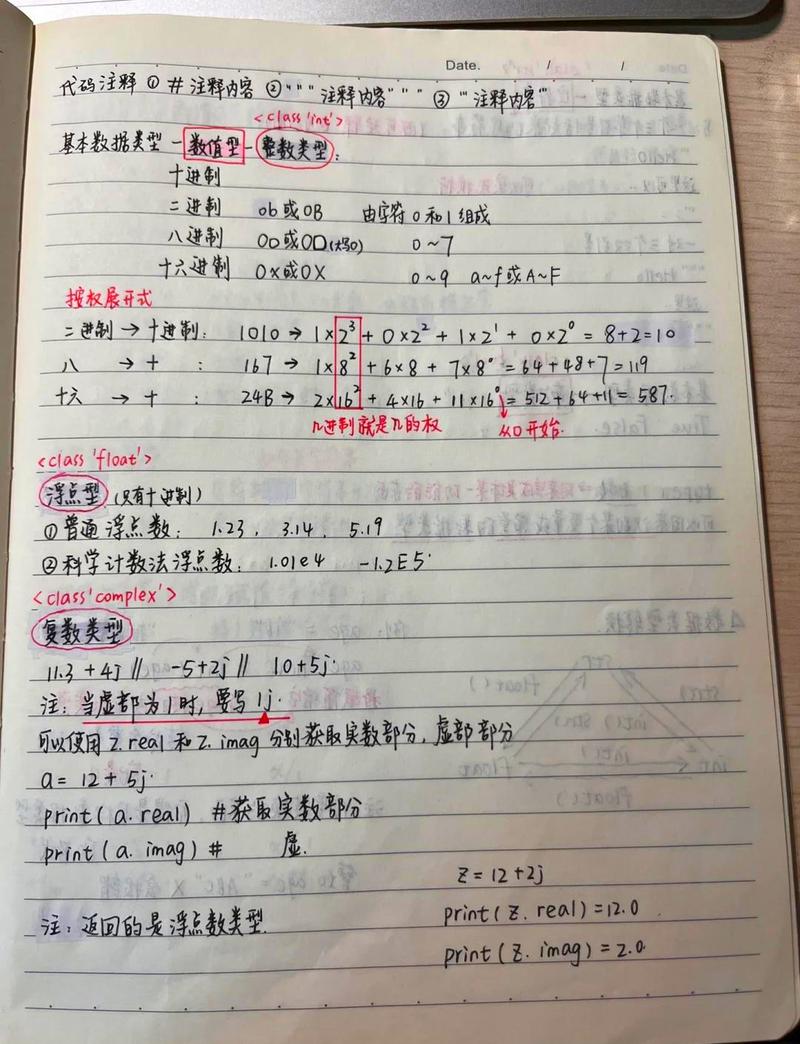 Date. / /
代码注释 ① # 注释内容 ② """注释内容""" ③ '''注释内容'''
<class 'int'>
基本数据类型 - 数值型 - 整数类型:
十进制
二进制 0b或0B 由字符0和1组成
八进制 0O或0O(大写O) 0~7
十六进制 0x或0X 0~9 a~f或A~F
按权展开式
二进制→十进制: 1010 → 1×2³ + 0×2² + 1×2¹ + 0×2⁰ = 8+2=10
八 → 十 : 167 → 1×8² + 6×8 + 7×8⁰ = 64+48+7=119
十六 → 十 : 24B → 2×16² + 4×16 + 11×16⁰ = 512+64+11= 587.
n进制就是n的权 从0开始.
<class 'float'>
浮点型 (只有十进制)
① 普通浮点数: 1.23, 3.14, 5.19
② 科学计数法浮点数: 1.01e4 -1.2E5.
<class 'complex'>
复数类型
11.3 + 4j // -5+2j // 10+5j.
注: 当虚部为1时, 要写1j.
可以使用 z.real 和 z.imag 分别获取实数部分, 虚部部分
a = 12 + 5j.
print(a.real) #获取实数部分
print(a.imag) # 虚.
z = 12+2j
注: 返回的是浮点数类型.
print(z.real)=12.0
print(z.imag)=2.0